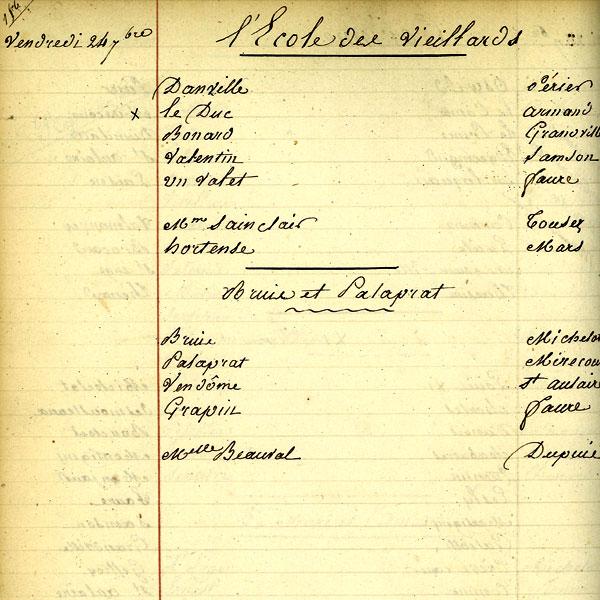 Vendredi 24 7bre
l'École des Vieillards
Danville Périer
x le Duc armand
Bonard Granvill
Valentin Samson
un valet faure
Mme Sainclair Tousez
hortense Mars
Bruie et Palaprat
Bruie Michelot
Palaprat Mirecou
Vendôme St aulaire
Grapin faure
Melle Beauval Dupuie